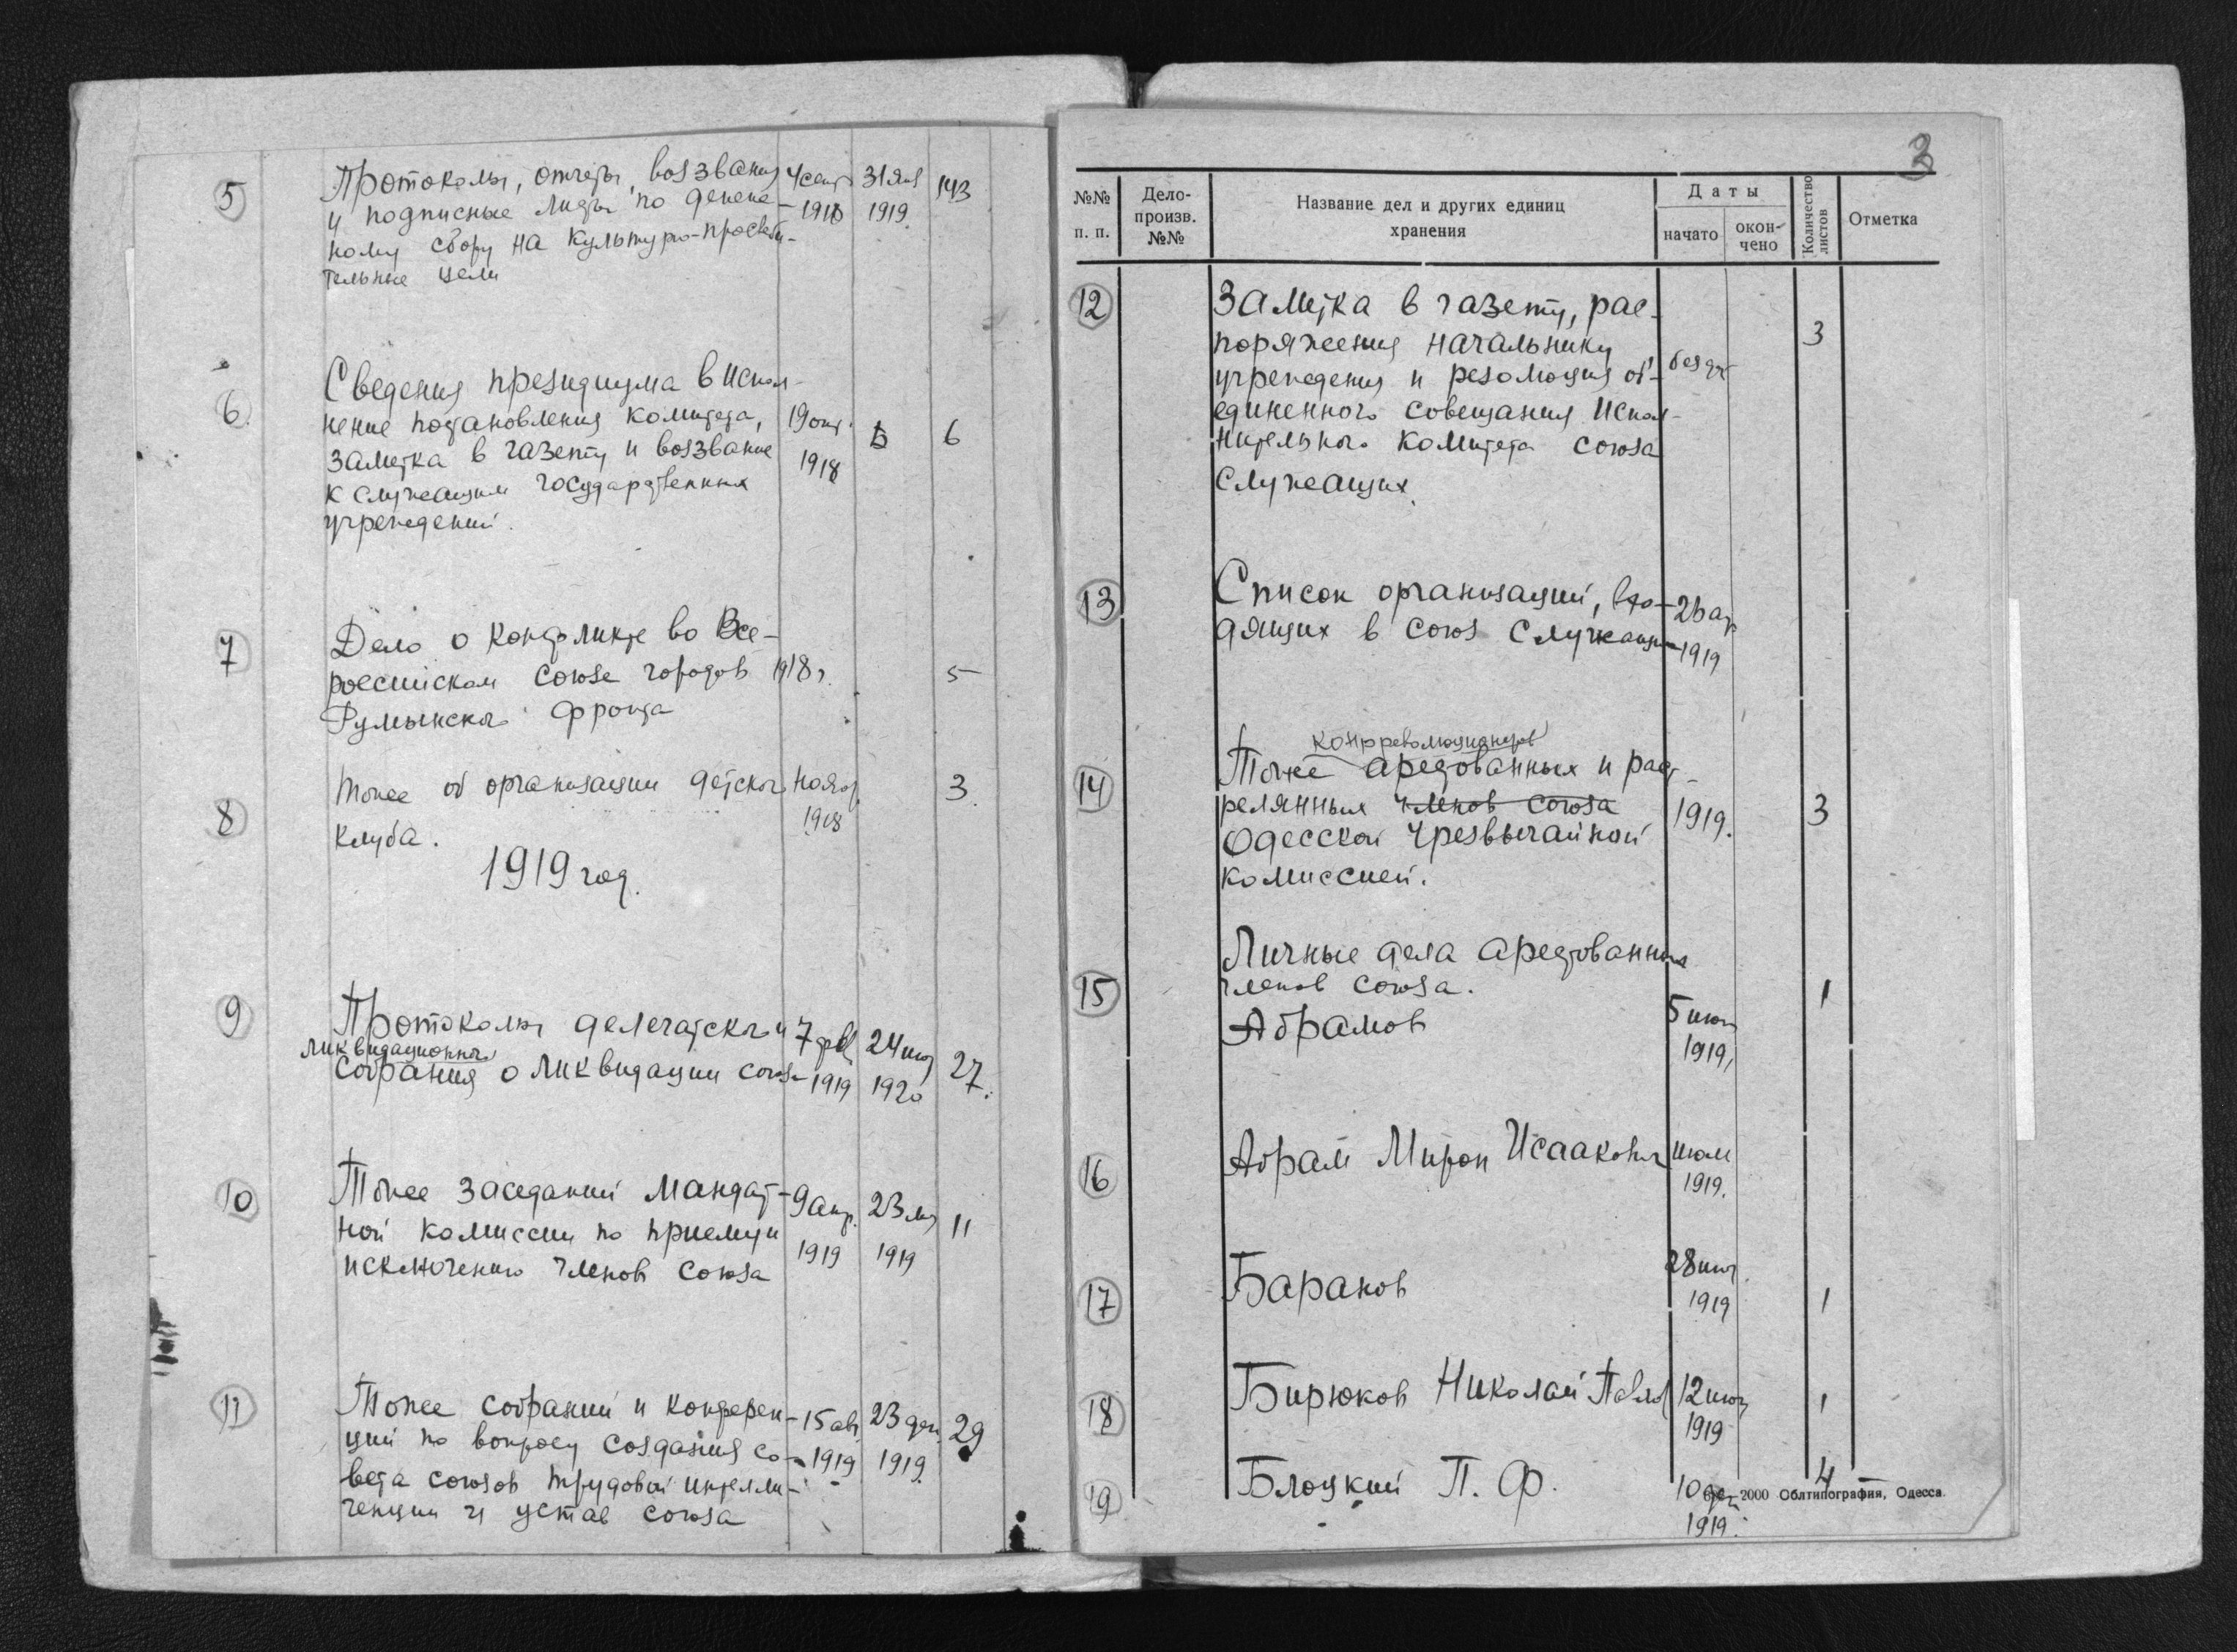 5 Протоколы, отчеты, воззвания 4 сент 31 янв 143
и подписные листы по денеж- 1918 1919
ному сбору на культурно-просвети-
тельные цели
6 Сведения президиума в испол-
нение постановления комитета, 19 окт. 6
заметка в газету и воззвание 1918
к служащим государственных
учреждений.
7 Дело о конфликте во Все-
российском союзе городов 1918 г. 5
Румынского фронта
8 Тоже об организации детского нояб. 3.
клуба. 1918
1919 год.
9 Протоколы делегатского и 7 фев 24 июл 27.
ликвидационного
собрания о ликвидации союза 1919 1920
10 Тоже заседаний мандат- 9 апр. 23 11
ной комиссии по приему и 1919 1919
исключению членов союза
11 Тоже собраний и конферен- 15 авг 23 дек. 29
ций по вопросу создания со- 1919 1919.
вета союзов трудовой интелли-
генции и устав союза
3
№№ п. п.
Дело-произв. №№
Название дел и других единиц
хранения
Даты
начато
окон-
чено
Количество листов
Отметка
12 Заметка в газету, рас- 3
поряжения начальнику
учреждения и резолюция об- без дат
единенного совещания Испол-
нительного комитета союза
служащих.
13 Список организаций, вхо- 26 ап
дящих в союз служащих 1919
контрреволюционеров
14 Тоже арестованных и расст-
релянных членов союза 1919. 3
Одесской чрезвычайной
комиссией.
Личные дела арестованных
15 членов союза. 1
Абрамов 5 июл
1919,
16 Абрам Мирон Исаакович июль
1919.
17 Баранов 28 июл.
1919 1
18 Бирюков Николай Павлов 12 июл 1
1919
19 Блоцкий П. Ф. 10 дек 4
2000 Облтипография, Одесса.
1919.